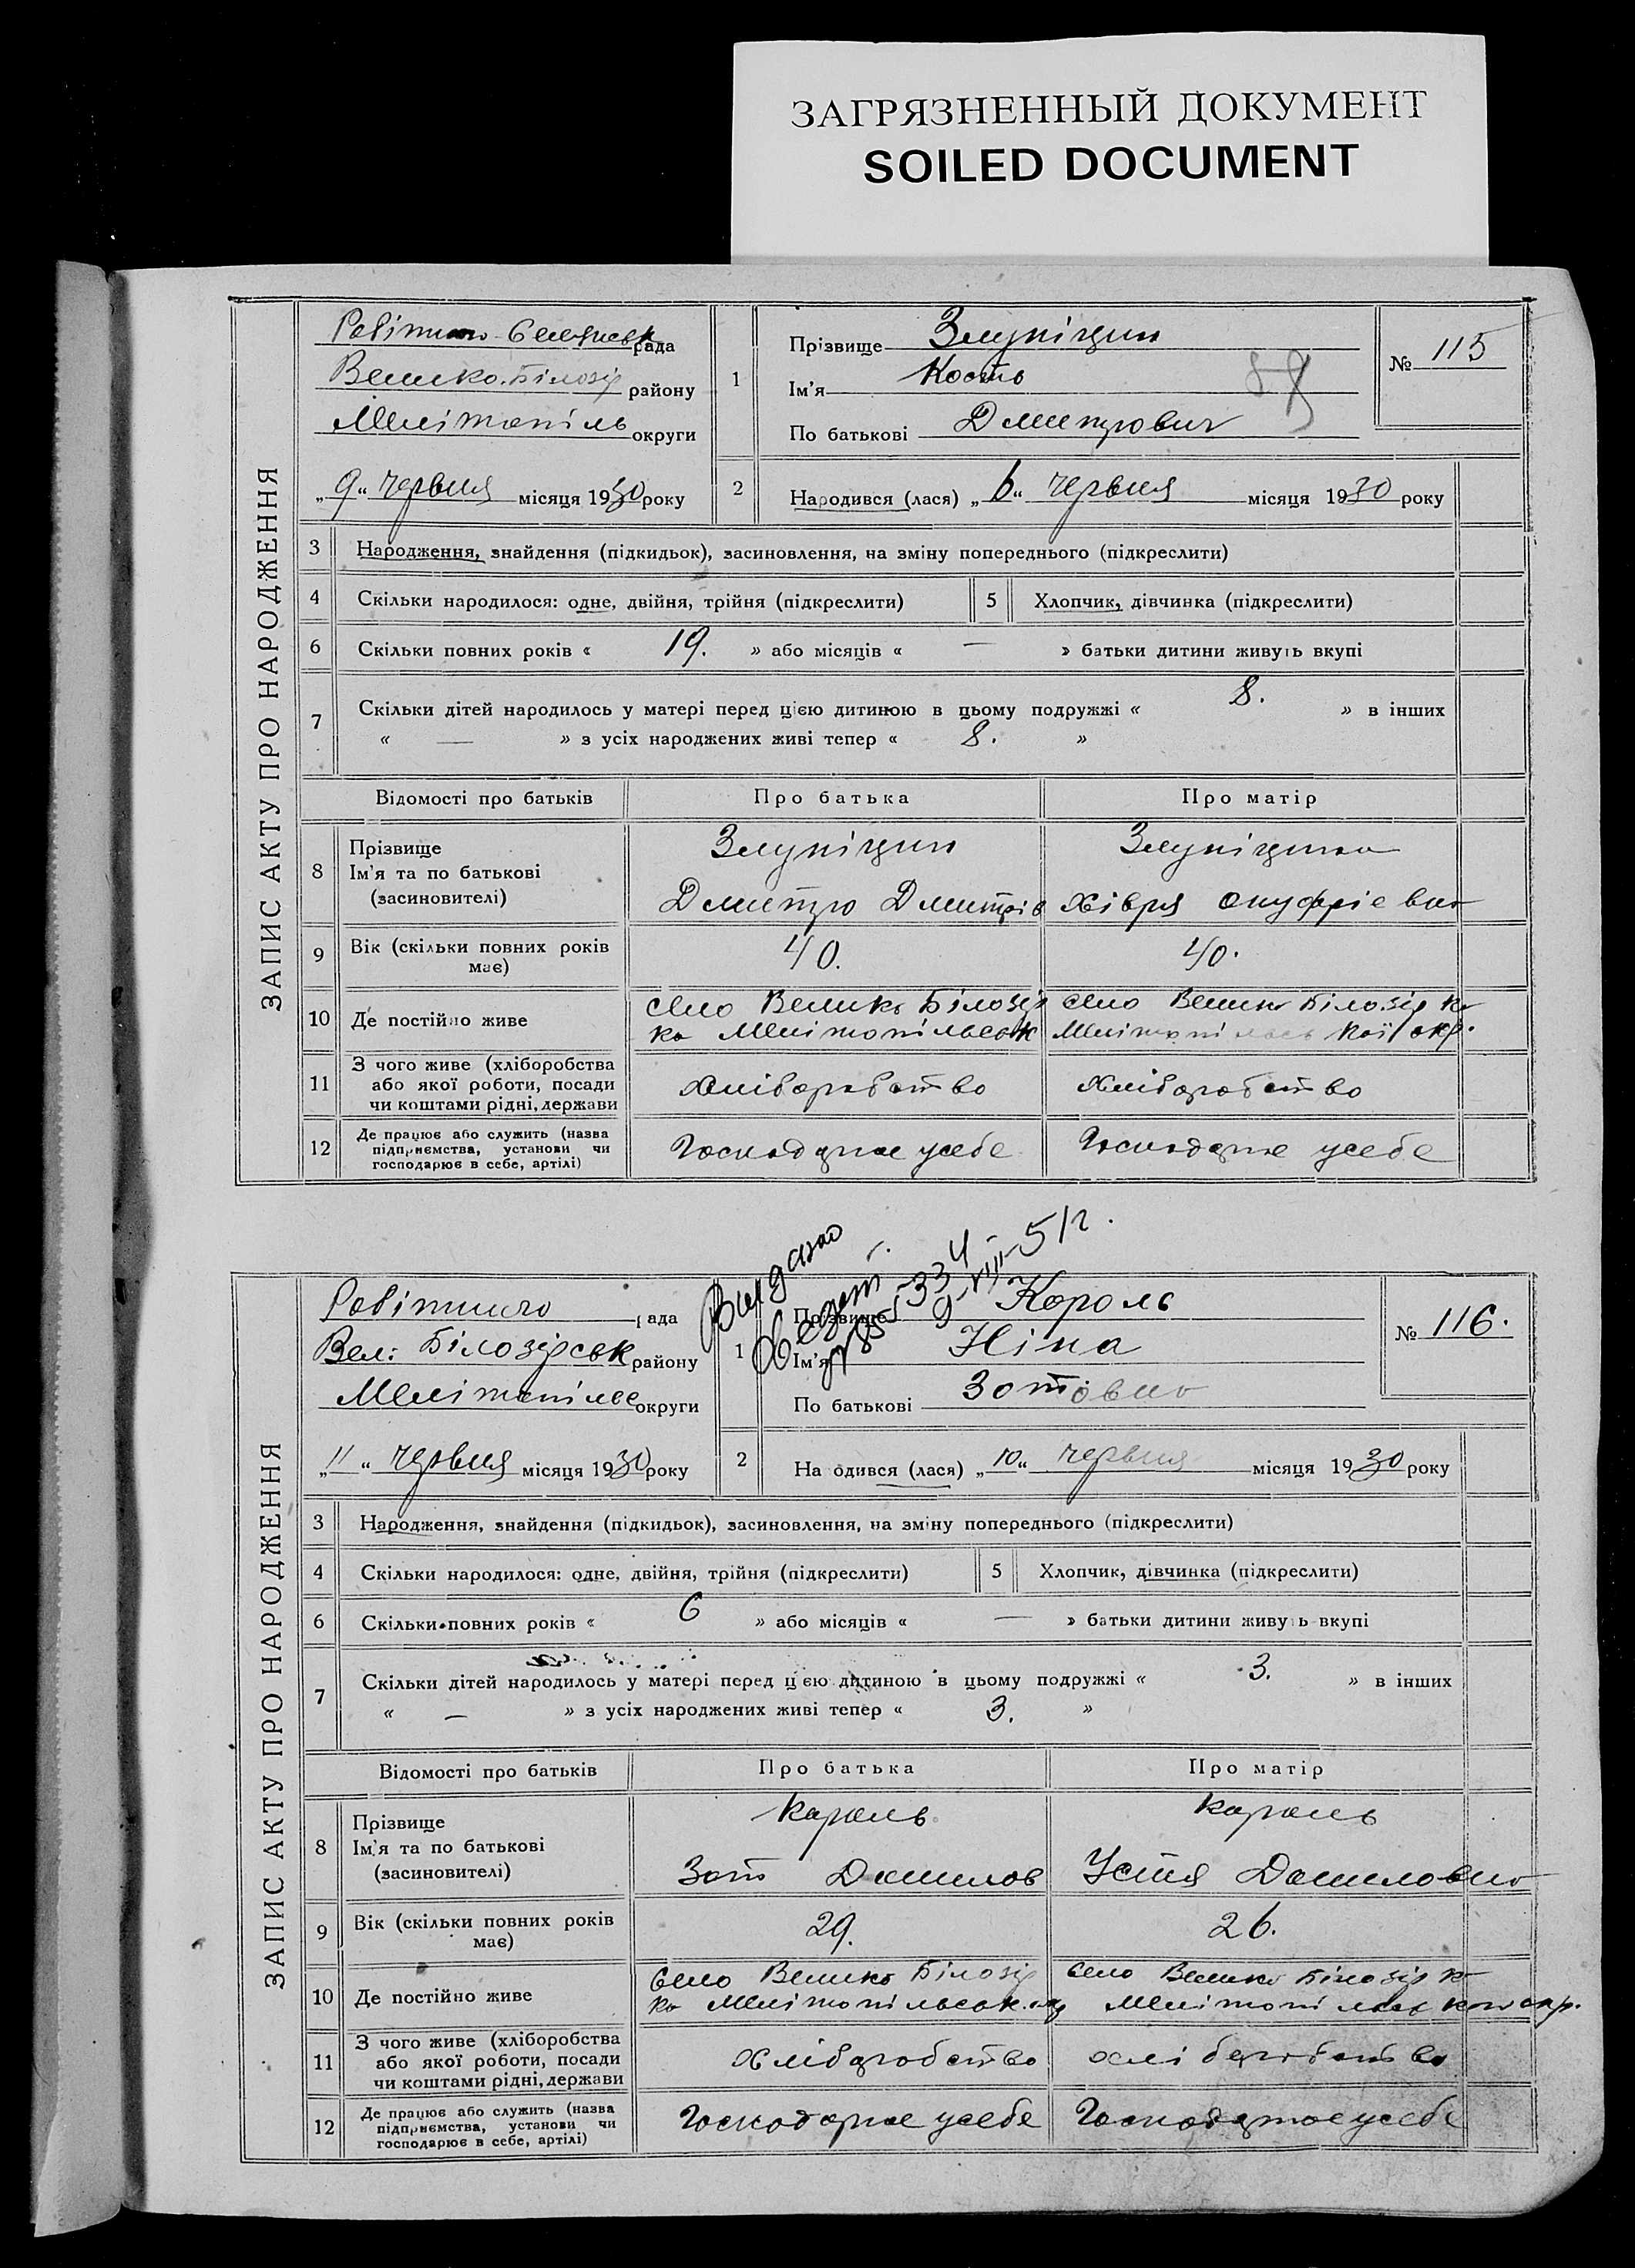 ЗАГРЯЗНЕННЫЙ ДОКУМЕНТ
SOILED DOCUMENT
ЗАПИС АКТУ ПРО НАРОДЖЕННЯ
рада
Велико-Білозір району
Мелітопіль округи
„9“ червня місяця 1930 року
1
Прізвище
Ім'я Кость
По батькові Дмитрович
№ 115
2
Народився (лася) „6“ червня місяця 1930 року
3 Народження, знайдення (підкидьок), засиновлення, на зміну попереднього (підкреслити)
4 Скільки народилося: одне, двійня, трійня (підкреслити)
5 Хлопчик, дівчинка (підкреслити)
6 Скільки повних років « 19. » або місяців « — » батьки дитини живуть вкупі
7 Скільки дітей народилось у матері перед цією дитиною в цьому подружжі « 8. » в інших
« — » з усіх народжених живі тепер « 8. »
Відомості про батьків
Про батька
Про матір
8 Прізвище
Ім'я та по батькові
(засиновителі)
Дмитро Дмитрів
Хівря Онуфріевна
9 Вік (скільки повних років
має)
40.
40.
10 Де постійно живе
село Велико Білозір
ка Мелітопільськ
село Велико Білозірка
Мелітопільської окр.
11 З чого живе (хліборобства
або якої роботи, посади
чи коштами рідні, держави
хліборобство
хліборобство
12 Де працює або служить (назва
підприємства, установи чи
господарює в себе, артілі)
Господарює у себе
Господарює у себе
Видано
334
9-VIII-51г.
ЗАПИС АКТУ ПРО НАРОДЖЕННЯ
рада
Вел: Білозірськ району
Мелітопільс округи
„11“ червня місяця 1930 року
1
Прізвище Король
Ім'я Ніна
По батькові Зотовна
№ 116.
2
На одився (лася) „10“ червня місяця 1930 року
3 Народження, знайдення (підкидьок), засиновлення, на зміну попереднього (підкреслити)
4 Скільки народилося: одне, двійня, трійня (підкреслити)
5 Хлопчик, дівчинка (підкреслити)
6 Скільки повних років « 6 » або місяців « — » батьки дитини живуть вкупі
7 Скільки дітей народилось у матері перед цією дитиною в цьому подружжі « 3. » в інших
« — » з усіх народжених живі тепер « 3. »
Відомості про батьків
Про батька
Про матір
8 Прізвище
Ім'я та по батькові
(засиновителі)
Король
Зот Данилов
Король
Устя Даниловна
9 Вік (скільки повних років
має)
29.
26.
10 Де постійно живе
село Велико Білозір
ка Мелітопільськ. окр
село Велико Білозірка
11 З чого живе (хліборобства
або якої роботи, посади
чи коштами рідні, держави
хліборобство
хліборобство
12 Де працює або служить (назва
підприємства, установи чи
господарює в себе, артілі)
Господарює у себе
Господарює у себе